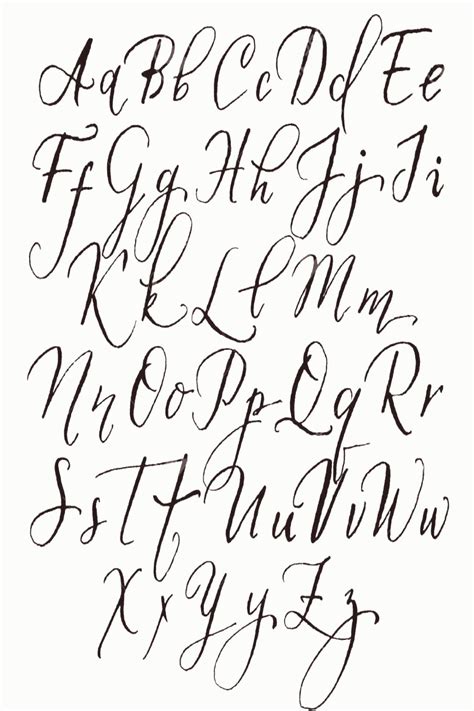 AaBbCcDdEe
FfGgHhJjIi
KkLlMm
NnOoPpQqRr
SsTtUuVvWw
XxYyZz